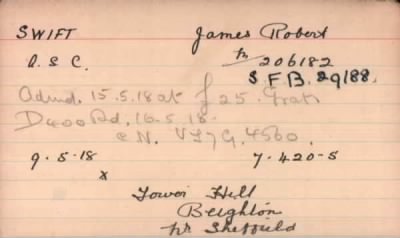 SWIFT James Robert
A.S.C. Tn/206182
S.F.B. 29188.
Admd. 15.5.18 at 25. Grat
D400 Rd. 16.5.18.
C.N. 4560.
9.5.18 7.420-5
x
Tower Hill
Beighton
Nr Sheffield